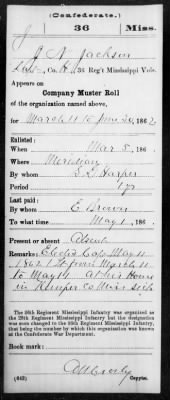 (Confederate.)
J 36 Miss.
J N Jackson
Co. H, 36 Reg't Mississippi Vols.
Appears on
Company Muster Roll
of the organization named above,
for March 11 to June 30, 1862.
Enlisted:
When Mar 5, 186
Where Meridian
By whom S. L. Harper
Period 1 yr
Last paid:
By whom E Brown
To what time May 1, 186
Present or absent Absent
Remarks: Elected Capt May 11
1862 1 Lt from March 11
to May 11 At his Home
in Kemper Co Miss sick
The 36th Regiment Mississippi Infantry was organized as
the 25th Regiment Mississippi Infantry but the designation
was soon changed to the 36th Regiment Mississippi Infantry,
that being the number by which this organization was known
at the Confederate War Department.
Book mark:
(642) Copyist.